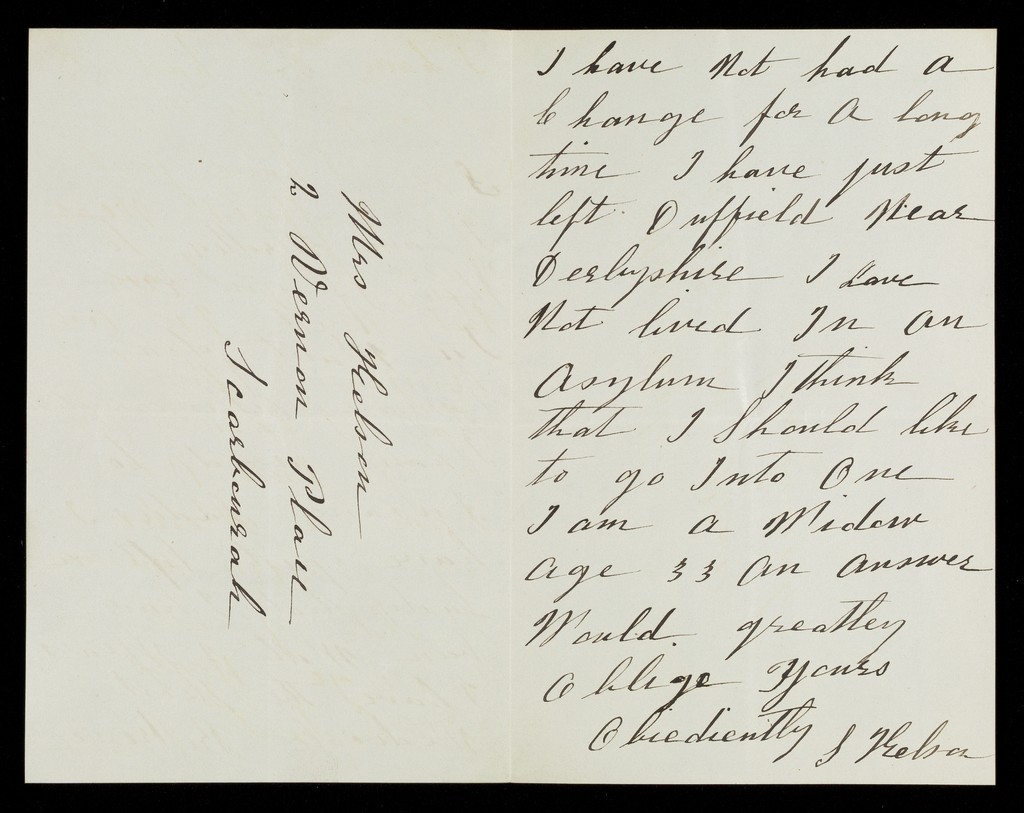 I have Not had a
Change for A long
time I have just
left Duffield Near
Derbyshire I have
Not lived In an
Asylum I think
that I Should like
to go Into One
I am a Widow
age 33 an answer
Would greatley
Oblige Yours
Obiediently S Kelson
Mrs Kelson
2 Vernon Place
Scarborah